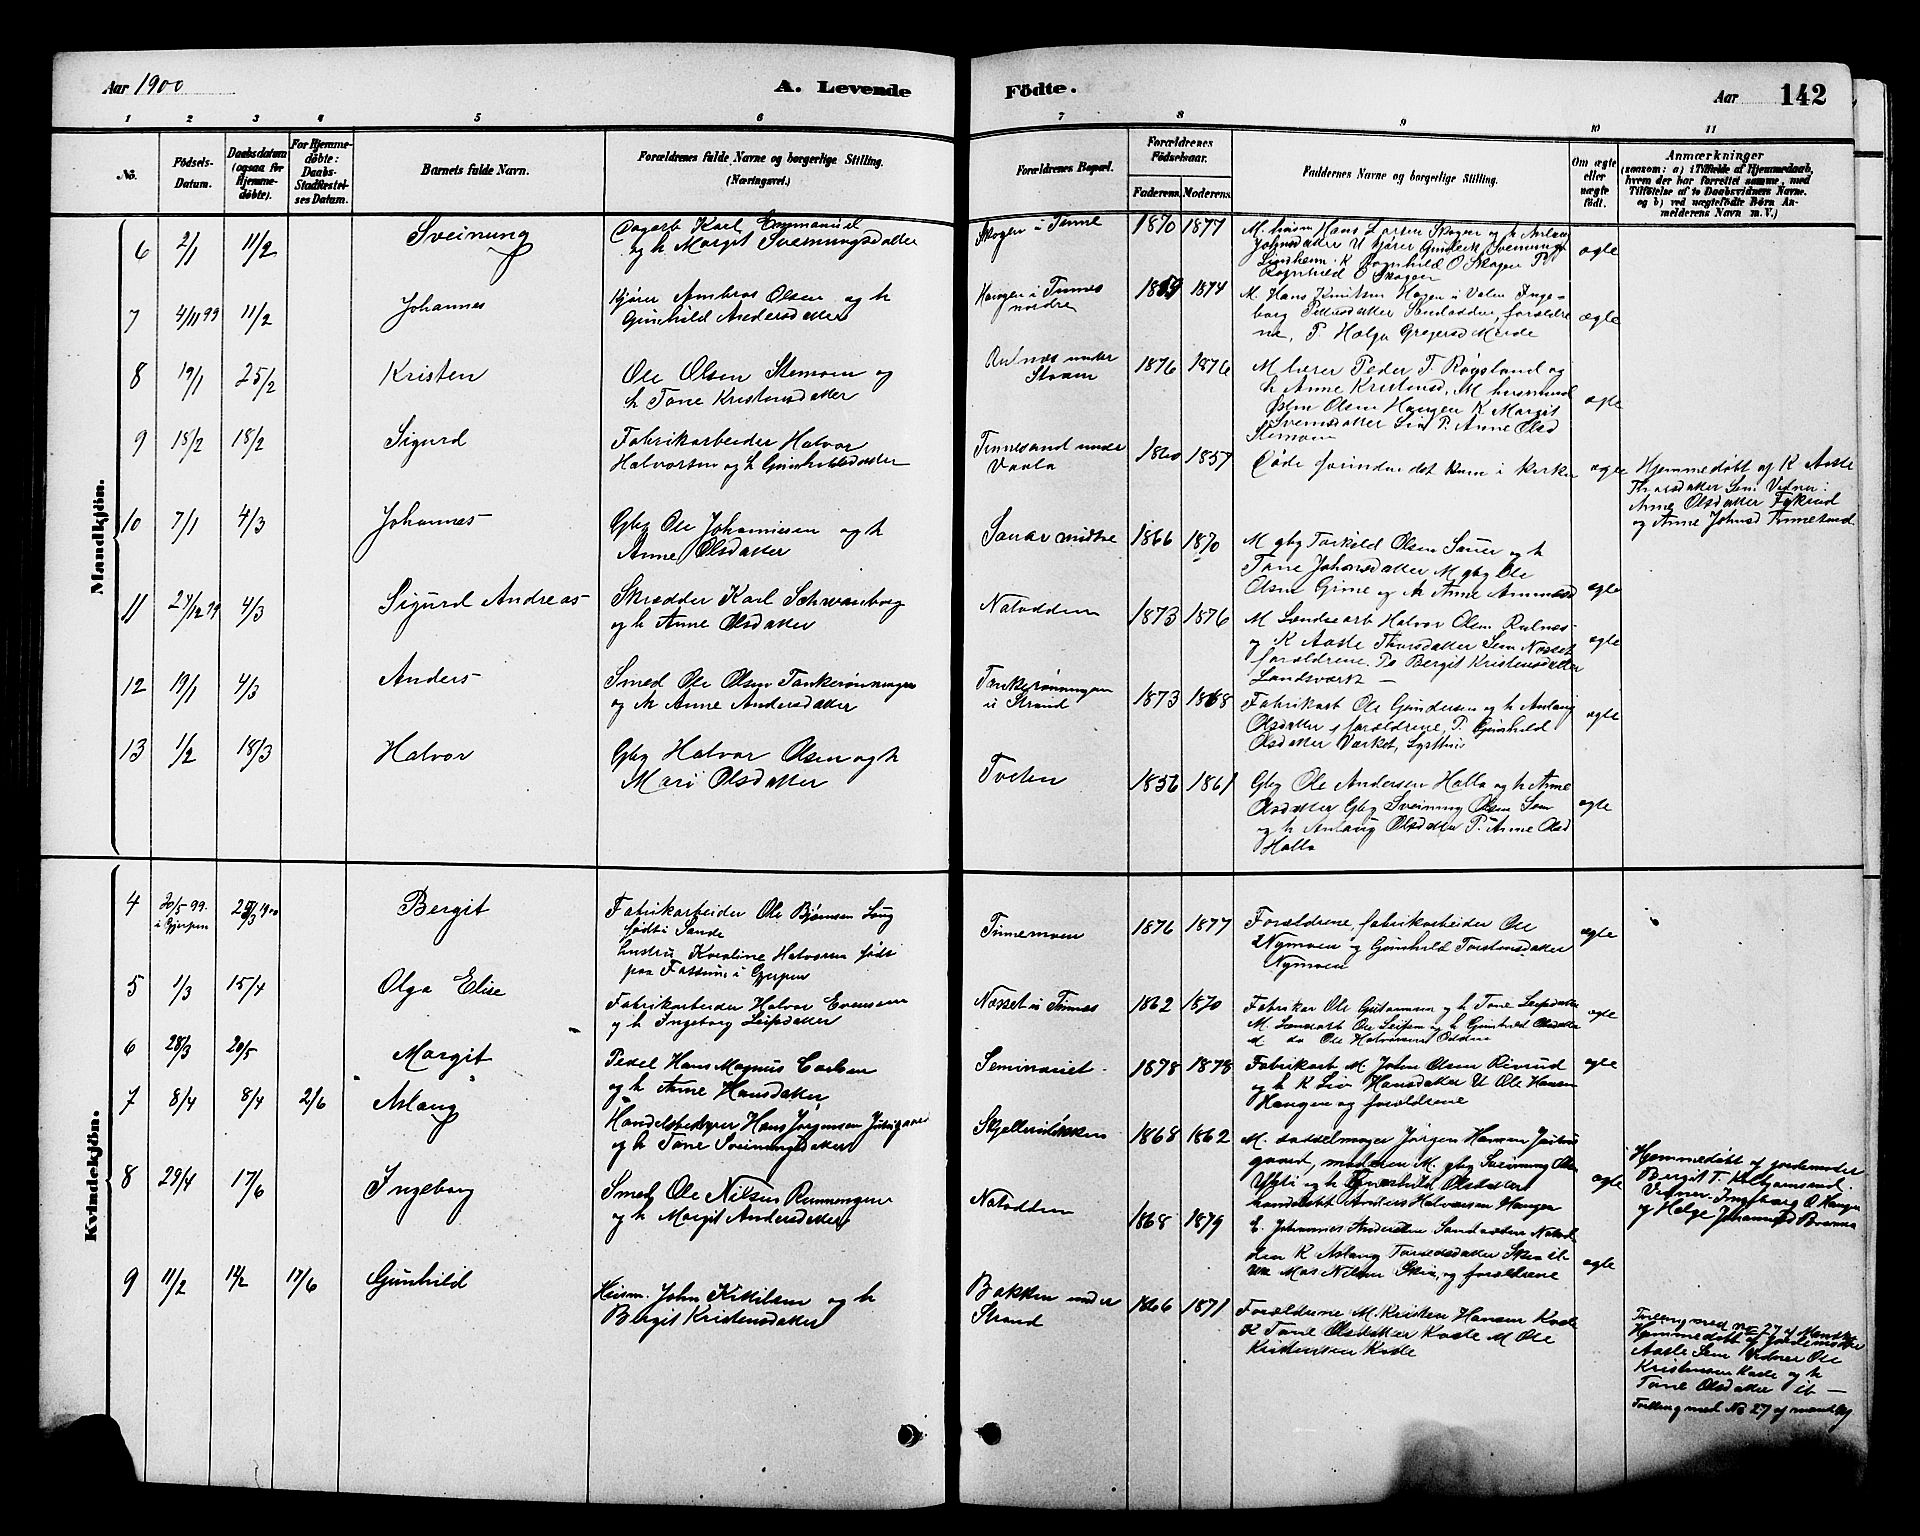 Aar 1900
A. Levende Födte.
Aar 142
1 2 3 4 5 6 7 8 9 10 11
No.
Födsels-Datum.
Daabsdatum (ogsaa for Hjemmedöbte).
For Hjemmedöbte: Daabs-Stadfæstelses Datum.
Barnets fulde Navn.
Forældrenes fulde Navne og borgerlige Stilling. (Næringsvei.)
Forældrenes Bopæl.
Forældrenes Födselsaar.
Faderens. Moderens.
Faddernes Navne og borgerlige Stilling.
Om ægte eller uægte födt.
Anmærkninger
(saasom: a) i Tilfælde af Hjemmedaab, hvem der har forrettet samme, med Tilföielse af to Daabsvidners Navne. og b) ved uægtefödte Börn Anmelderens Navn m. V.)
Mandkjön.
6 2/1 11/2 Sveinung
Dagarb Karl Emmanuel
og h Margit Sveinungsdatter
Skogen i Tinne 1870 1877
M. husm Hans Larsen Skogen og h Aslaug
Johnsdatter U kjører Gunleik Sveinungs
Lindheim. K Ragnhild O Skogen P.
Ragnhild O Skogen
ægte
7 4/11 99 11/2 Johannes
Kjører Ambros Olsen og h
Gunhild Andersdatter
Haugen i Tinnes nordre 1859 1874
M. Hans Knutsen Hagen i Valen Inge-
borg Pettersdatter Sandodden, foreldre
ne, P. Helga Gregersd Meide
ægte
8 19/1 25/2 Kristen
Ole Olsen Stemoen og
h Tone Kristensdatter
under 1876 1876
M lærer Peder T. Røysland og
h Anne Kristensd, M husmand
Østen Olsen Haugen K Margit
Svensdatter Lia P. Anne Olsd
Stemoen
ægte
9 15/2 18/2 Sigurd
Fabrikarbeider Halvor
Halvorsen og h Gunhild datter
Tinnesand under 1860 1857
Døde forinden det kom i Kirken
ægte
Hjemmedøbt af K Aaste
Thorsdatter Sem Vidner:
Anne Olsdatter Fykerud
og Anne Johnsd Tinnesand
10 7/1 4/3 Johannes
Gbg Ole Johannesen og h
Anne Olsdatter
Sauar midtre 1866 1870
M gbg Torkild Olsen Sauer og h
Tone Johansdatter M gbg Ole
Olsen Grine og h Anne
ægte
11 27/12 99 4/3 Sigurd Andreas
Skrædder Karl Schwanborg
og h Anne Olsdatter
Notodden 1873 1876
M Landsearb Halvor Olsen
og K Aaste Thorsdatter Sem Næsset
forældrene. P. Bergit Kristensdatter
Landsværk
ægte
12 19/1 4/3 Anders
Smed Ole Olsen Tankerønningen
og h Anne Andersdatter
Tankerønningen u Strand 1873 1868
Fabrikarb Ole Gundersen og h Aslaug
Olsdatter, forældrene, P. Gunhild
Olsdatter Værket,
ægte
13 1/2 18/3 Halvor
Gbg Halvor Olsen og h
Mari Olsdatter
Tveten 1856 1861
Gbg Ole Andersen Halla og h Anne
Olsdatter Gbg Sveinung Olsen Sem
og h Aslaug Olsdatter P. Anne Olsd
Halla
ægte
Kvindekjön.
4 20/5 99. i Gjerpen 25/3 1900 Bergit
Fabrikarbeider Ole Bjørnsen
født i Sande
hustru Karoline Halvorsen født
paa Fossum i Gjerpen
Tinnemoen 1876 1877
Forældrene, fabrikarbeider Ole
Nymoen og Gunhild Torstensdatter
Nymoen
ægte
5 1/3 15/4 Olga Elise
Fabrikarbeider Halvor Evensen
og h Ingeborg Leifsdatter
Næsset u Tinnes 1862 1870
Fabrikar Ole og h Tone Leifsdatter
M. Landarb Ole Leifsen og h Gunhild Olsdatter
do Ole Halvorsen Odden
ægte
6 28/3 20/5 Margit
Pedel Hans Magnus Carlsen
og h Anne Hansdatter
Seminariet 1878 1878
Fabrikarb M John Olsen Rivrud
og h K Liv Hansdatter U Ole Hansen
Haugen og forældrene
ægte
7 8/4 8/4 2/6 Aslaug
Handelsbestyrer Hans Jørgensen
og h Tone Sveinungsdatter
1868 1862
M. sadelmager Jørgen Hansen
gaard, moderen M. gbg Sveinung Olsen
og h Gunhild Olsdatter
Anders Halvorsen Haugen
ægte
Hjemmedøbt af jordemoder
Bergit T.
Vidner: Ingeborg O Haugen
og Helge Johannesd
8 29/4 17/6 Ingeborg
Smed Ole Nilsen Rønningen
og h Margit Andersdatter
Notodden 1868 1879
E. Johannes Andersen Notod-
den K Aslaug datter Skien
Nilsen Skien, og forældrene
ægte
9 11/2 14/2 17/6 Gunhild
Husm. John Kittilsen og h
Bergit Kristensdatter
Bakken under Strand 1866 1871
Forældrene M. Kristen Hansen Kaste
K Tone Olsdatter Kaste M Ole
Kristensen Kaste
Tvilling med no 27 af Mandkj
Hjemmedøbt af jordemoder
Aaste Sem Vidner Ole
Kristensen Kaste og h
Tone Olsdatter ib —
Tvilling med No 27 af mandkj